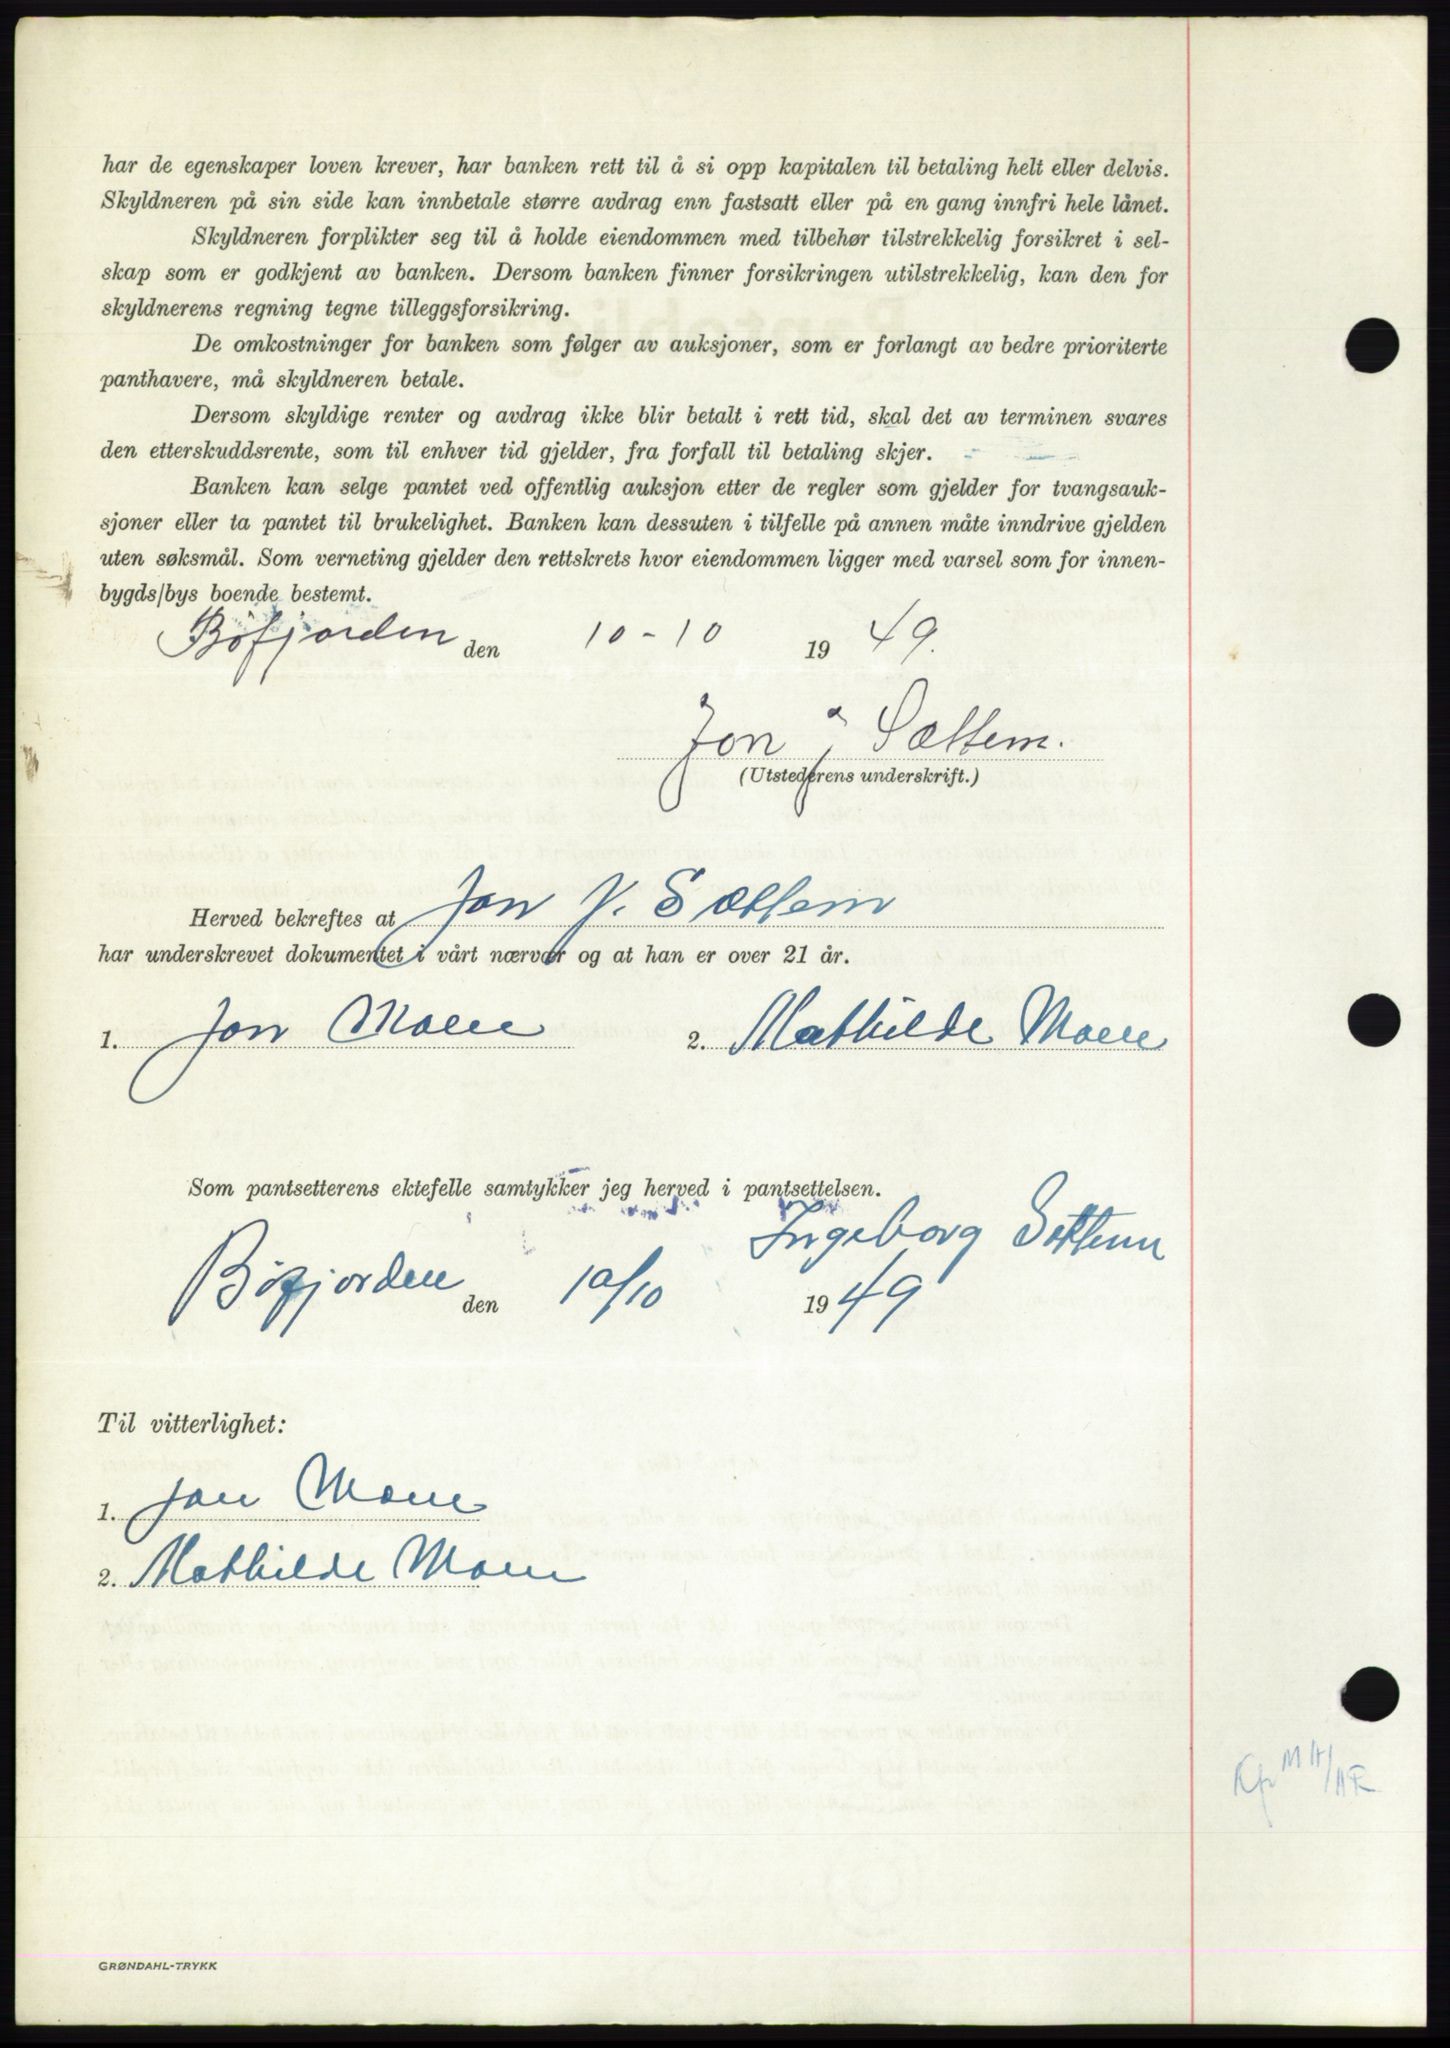 har de egenskaper loven krever, har banken rett til å si opp kapitalen til betaling helt eller delvis.
Skyldneren på sin side kan innbetale større avdrag enn fastsatt eller på en gang innfri hele lånet.
Skyldneren forplikter seg til å holde eiendommen med tilbehør tilstrekkelig forsikret i sel-
skap som er godkjent av banken. Dersom banken finner forsikringen utilstrekkelig, kan den for
skyldnerens regning tegne tilleggsforsikring.
De omkostninger for banken som følger av auksjoner, som er forlangt av bedre prioriterte
panthavere, må skyldneren betale.
Dersom skyldige renter og avdrag ikke blir betalt i rett tid, skal det av terminen svares
den etterskuddsrente, som til enhver tid gjelder, fra forfall til betaling skjer.
Banken kan selge pantet ved offentlig auksjon etter de regler som gjelder for tvangsauk-
sjoner eller ta pantet til brukelighet. Banken kan dessuten i tilfelle på annen måte inndrive gjelden
uten søksmål. Som verneting gjelder den rettskrets hvor eiendommen ligger med varsel som for innen-
bygds/bys boende bestemt.
Bøfjorden den 10-10 1949.
Jon J Sættem.
(Utstederens underskrift.)
Herved bekreftes at Jon J. Sættem
har underskrevet dokumentet i vårt nærvær og at han er over 21 år.
1. Jon Moen 2. Mathilde Moen
Som pantsetterens ektefelle samtykker jeg herved i pantsettelsen.
Ingeborg Settem
Bøfjorden den 10/10 1949
Til vitterlighet:
1. Jon Moen
2. Mathilde Moen
Kfr MH/AF
GRØNDAHL-TRYKK